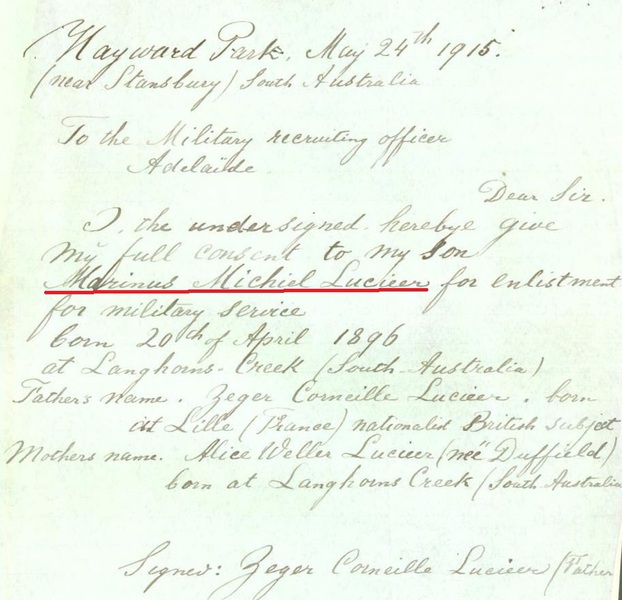 Hayward Park. May 24th 1915.
(near Stansbury) South Australia
To the Military recruiting officer
Adelaide.
Dear Sir.
I, the undersigned hereby give
my full consent to my son
Marinus Michiel Lucieer for enlistment
for military service
born 20th of April 1896
at Langhorns-Creek (South-Australia)
Fathers name. Zeger Corneille Lucieer. born
at Lille (France) nationalist British subject
Mothers name. Alice Weller Lucieer (neé Duffield)
born at Langhorns Creek (South Australia
Signed: Zeger Corneille Lucieer (Father